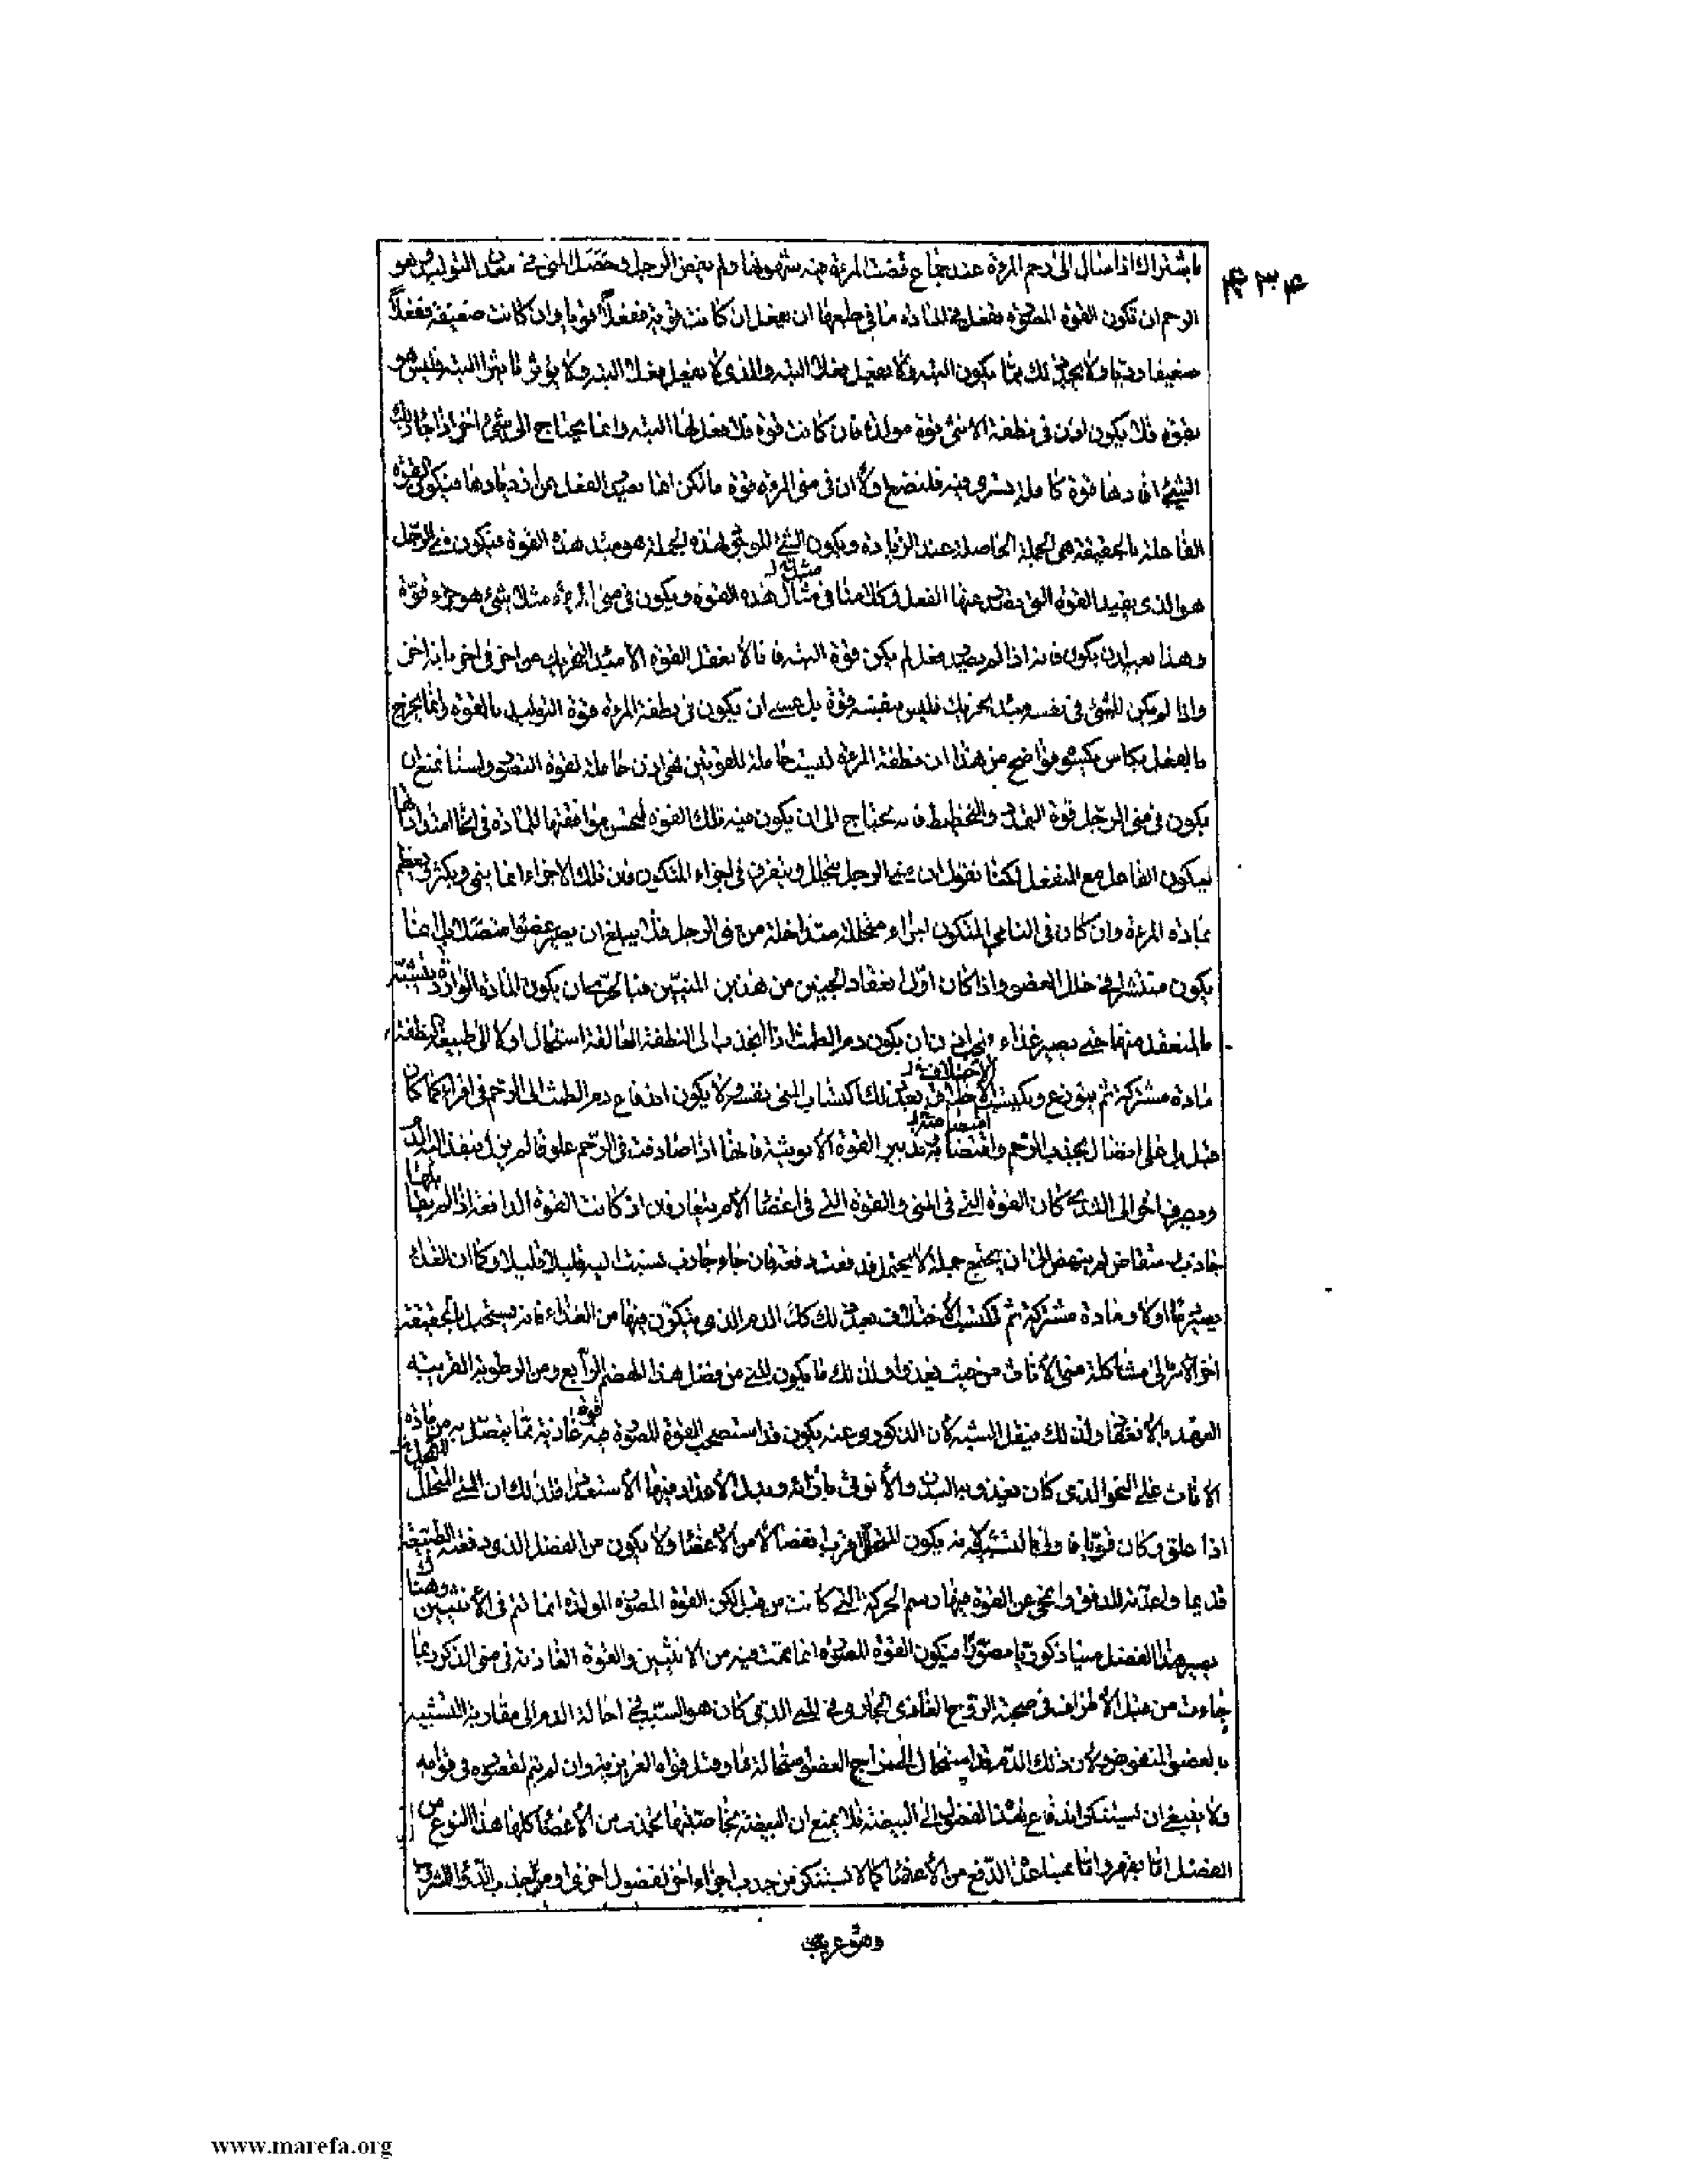 باشتراك اذا سال الى رحم المرءة عند جماع قضت المرءة فيه شهوتها ولم يفض الرجل وحصل المنى فى معدن التوليد وهو
۴۳۴
الرحم ان تكون القوة المصورة تفعل فى المادة ما فى طبعها ان تفعل ان كانت قوية ففعلاً قويا وان كانت ضعيفة ففعلاً
ضعيفا ولا يكون البته ولا تفعل فعلا البته والذى لا يفعل فعلا البته ولا يؤثر تاثيرا البته فليس هو
بقوة فلا يكون اذن فى نطفة الانثى قوة مولدة فان كانت قوة فلا فعل لها البته وانما يحتاج الى شىء اخر اذا جاء ذلك
الشىء افادها قوة كاملة فلنضع اولا ان فى منى المرءة قوة ما لكن انما يصدر الفعل عن ازديادها فيكون القوة
الفاعلة بالحقيقة هى الجملة الحاصلة عند الزيادة ويكون الشىء لهذه الجملة هو مبدء هذه القوة فيكون منى الرجل
هو الذى يفيد القوة التى يصدر عنها الفعل وكلامنا فى مثال هذه القوة ويكون فى منى المرءة مثلا شىء هو جزء قوة
وهذا بعيد ان يكون فانه اذا لم يصدر فعل لم يكن قوة البته فانا لا نعقل القوة الا مبدء التحريك من اخر فى اخر بانه اخر
واذا لم يكن للشىء فى نفسه مبدء تحريك فليس بنفسه قوة بل عسى ان يكون فى نطفة المرءة قوة التوليد بالقوة وانما يخرج
بالفعل فواضح من هذا ان نطفة المرءة ليست حاملة للقوتين فهى اذن حاملة لقوة التصور ولسنا نمنع ان
يكون فى منى الرجل قوة التمدد والتخطيط فانه يحتاج الى ان يكون فيه تلك القوة ليحسن موافقتها للمادة فى انحاء امتدادها
ليكون الفاعل مع المنفعل لكنا نقول ان منى الرجل يتحلل ويتفرق فى اجزاء المتكون فان تلك الاجزاء انما ينمى ويكثر ويعظم
بمادة المرءة وان كان فى النامى المتكون اجزاء متحللة متداخلة من منى الرجل فلا يبلغ ان يصير عضوا منفصلا بل انما
يكون منتشرا فى خلل العضو واذا كان اول انعقاد الجنين من هذين المنيين فبالحرى ان يكون المادة الواردة يتشبه
بالمنعقد منهما حتى يصير غذاء فيجب اذن ان يكون دم الطمث اذا انجذب الى النطفة العالقة استحال اولا الى طبيعة النطفة
الاختلاف
مادة مشتركة ثم يتوزع ويكتسب الاختلاف بعد ذلك اكتساب المنى نفسه ولا يكون اندفاع دم الطمث الى الرحم فى اقرائها كما كان
قبل بل على اتصال لجذب الرحم واقتضاء تدبير القوة الابوية فانها اذا صادفت فى الرحم علوقا لم يزل ينفذ اليه المدد
ويصرف اخر الى الثدى كان القوة التى فى المنى والقوة التى فى اعضاء الام يتعارفان اذ كانت القوة الدافعة اذا لم يقابلها
جاذب متقاض لم ينهض الى ان يجتمع جملة لا يحتمل فدفعت دفعة فان جاء جاذب نسبت اليه قليلا قليلا وكما ان الغذاء
يصير دما اولا ومادة مشتركة ثم تكتسب الاختلاف بعد ذلك كذلك الدم الذى يتكون فيها من الغذاء فانه يستحيل بالحقيقة
اخر الامر الى مشاكلة منى الاناث من حيث يغذوا ولذلك ما يكون المنى من فضل هذا الهضم الرابع ومن الرطوبة القريبة
العهد بالانعقاد ولذلك ينقل الشبه كان الذكورى عنه يكون قد استصحب القوة المصورة فيه قوة غاذية بما يتصل به من مادة
الاناث على النحو الذى كان يغذو به البدن والانوثى بازائه وبدل الامداد فيهما الاستعداد فلذلك ان المنى المتحلل
اذا علق وكان قويا يكون المتخلق اقرب نقصانا من الاعضاء ولا يكون من الفضل الذى دفعته الطبيعة
قديما واعدته للدفق وانمحى عن القوة فيها رسم الحركة التى كانت من قبل لكن القوة المصورة المولدة انما تتم فى الانثيين وهناك
يصير هذا الفضل منيا ذكوريا مصورا فيكون القوة المصورة انما تمت فيه من الانثيين والقوة الغاذية فى منى الذكر ربما
جاءت من قبل الاطراف فى صحبة الروح الغاذى الجارى فى المنى الذى كان هو السبب فى احالة الدم الى مقاربة التشبيه
بالعضو المنفوض ولان ذلك الدم قد استحال الى مزاج العضو استحالة ما وقبل قواه الغريزية وان لم يتم لقصوره فى قوامه
ولا ينبغى ان يستنكر اندفاع هذا الفضل الى البيضة فلا يمنع ان البيضة بخاصيتها تجذب من الاعضاء كلها هذا النوع من
الفضل اما بقهر واما بمباعدة الدفع من الاعضاء كما لا يستنكر من جذب اجزاء اخر لفضول اخرى ومن جذب الثدى
وهو غريب
www.marefa.org